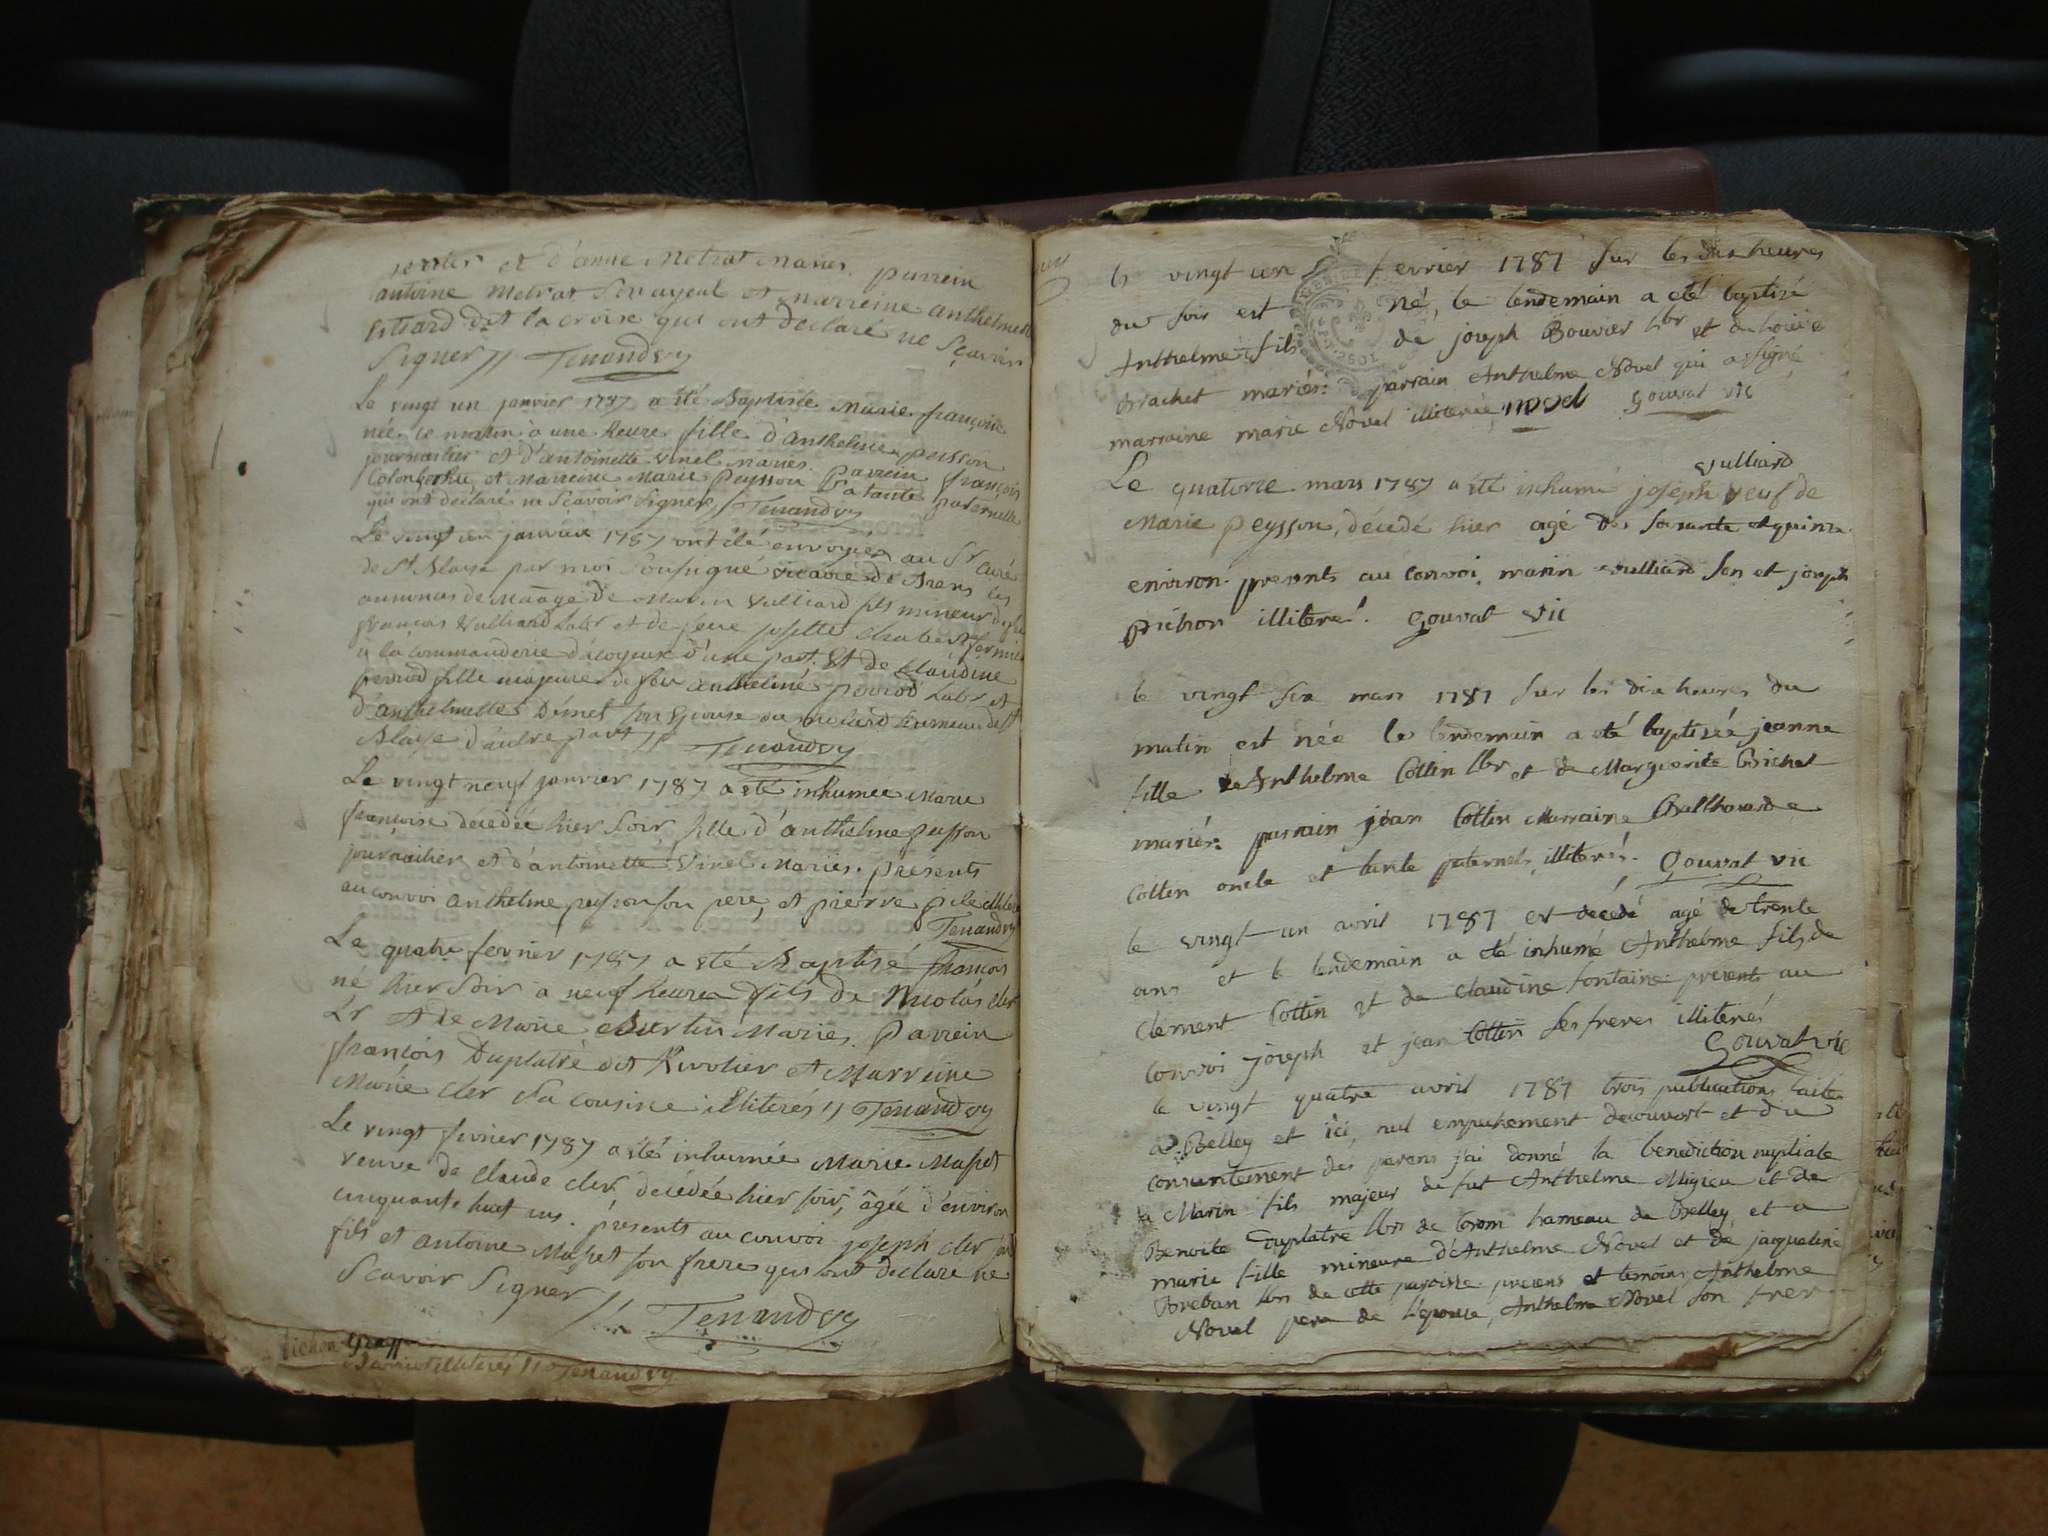 et d'anne Metrat Maries. parrein
antoine Metrat Son ayeul et marreine anthelmette
dit la croise qui ont declaré ne Scavoir
Signer // Tenandvy
Le vingt un janvier 1787 a été Baptisée Marie françoise
née ce matin à une heure fille d'anthelme peisson
journailier et d'antoinette vinel maries. parrein françois
et Marreine Marie Peysson Sa tante paternelle
qui ont déclaré ne Scavoir Signer // Tenandvy
Le vingt un janvier 1787 ont été envoyées au Sr curé
de St Blaise par moi Soussigné vicaire de Arens les
annonces de Mâage de Marin Vulliard fils mineur de
françois Vulliard Labr et de feue josette fermier
à la Commanderie d'acoyeux d'une part. Et de Claudine
perrod fille majeure de feu anthelme perrod Labr et
d'anthelmette Dimet son Epouse du hameau de St
Blaise d'autre part // Tenandvy
Le vingt neuf janvier 1787 a été inhumée Marie
françoise décédée hier Soir, fille d'anthelme peysson
journailier et d'antoinette Vinel Maries. présents
au convoi anthelme peysson son pere, et pierre
Tenandvy
Le quatre fevrier 1787 a été Baptisé françois
né hier Soir à neuf heures fils de Nicolas cler
Lr et de Marie Burtin Maries. parrein
françois Duplatre dit Rivolier et Marreine
Marie cler Sa cousine illiterés // Tenandvy
Le vingt fevrier 1787 a été inhumée Marie Masset
veuve de claude cler, decédée hier soir, âgée d'environ
cinquante huit ans. présents au convoi joseph cler son
fils et antoine Masset son frere qui ont declaré ne
Scavoir Signer // Tenandvy
illiterés // Tenandvy
le vingt un fevrier 1787 sur les dix heures
du soir est né, le lendemain a eté baptisé
Anthelme fils de joseph Bouvier lbr et de
Brachet mariés: parrain Anthelme Novel qui a signé
marraine marie Novel illiterée, novel Gouvat vic
vulliard
Le quatorze mars 1787 a été inhumé joseph veuf de
Marie Peysson, décédé hier agé de soixante et quinze
environ. presents au convoi marin vulliard son et joseph
pichon illiterés. Gouvat vic
le vingt six mars 1787 sur les dix heures du
matin est née le lendemain a eté baptisée jeanne
fille de Anthelme Cottin lbr et de Marguerite Brichet
mariés: parrain jean Cottin Marraine Balthazarde
Cottin oncle et tante paternels, illiterés. Gouvat vic
le vingt un avril 1787 est decedé agé de trente
ans et le lendemain a eté inhumé Anthelme fils de
Clement Cottin et de Claudine fontaine present au
convoi joseph et jean Cottin ses freres illiterés
Gouvat vic
le vingt quatre avril 1787 trois publications faites
à Belley et ici, nul empechement decouvert et du
consentement des parens j'ai donné la benediction nuptiale
a Marin fils majeur de fut Anthelme Migieu et de
Benoite Duplatre lbrs de Coron hameau de Belley, et a
marie fille mineure d'Anthelme Novel et de jacqueline
Breban lbrs de cette paroisse presens et temoins Anthelme
Novel pere de l'epouse, Anthelme Novel son frer